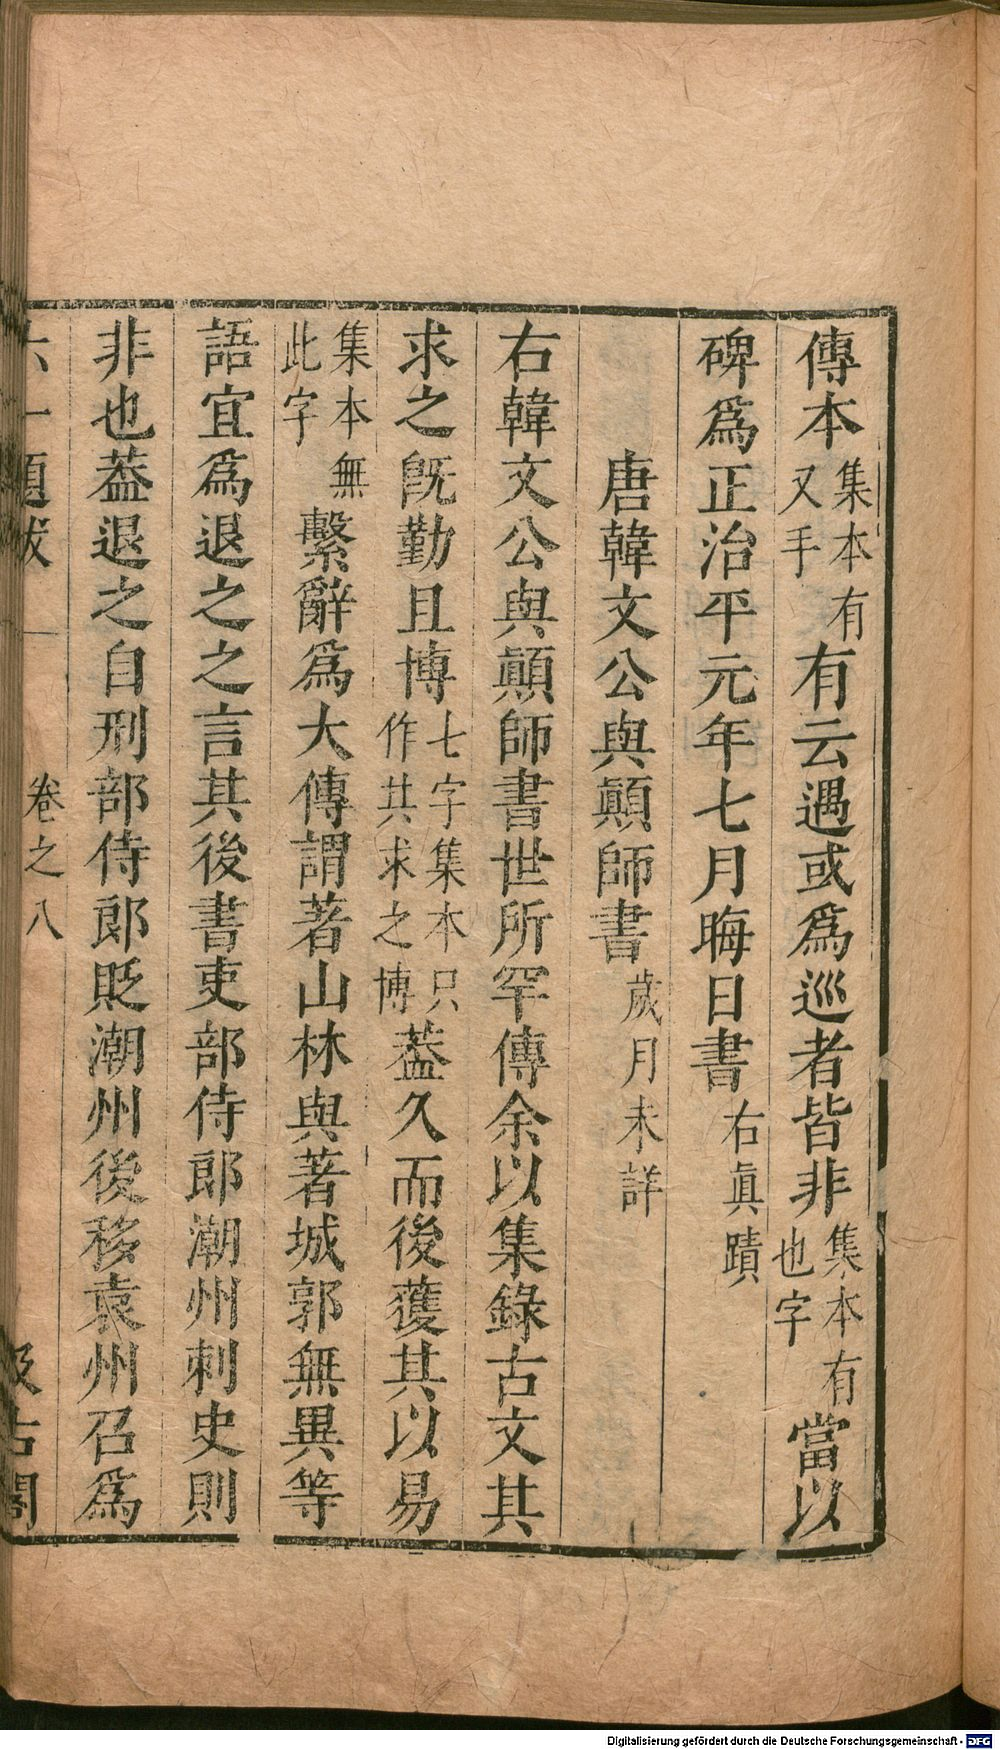 傳本集本有又手有云遇或爲巡者皆非集本有也字當以
碑爲正治平元年七月晦日書右眞蹟
唐韓文公與顚師書歲月未詳
右韓文公與顚師書世所罕傳余以集錄古文其
求之旣勤且博七字集本只作共求之博葢久而後獲其以易
集本無此字繫辭爲大傳謂著山林與著城郭無異等
語宜爲退之之言其後書吏部侍郎潮州刺史則
非也葢退之自刑部侍郎貶潮州後移袁州召爲
六一題跋 卷之八 汲古閣
Digitalisierung gefördert durch die Deutsche Forschungsgemeinschaft - DFG